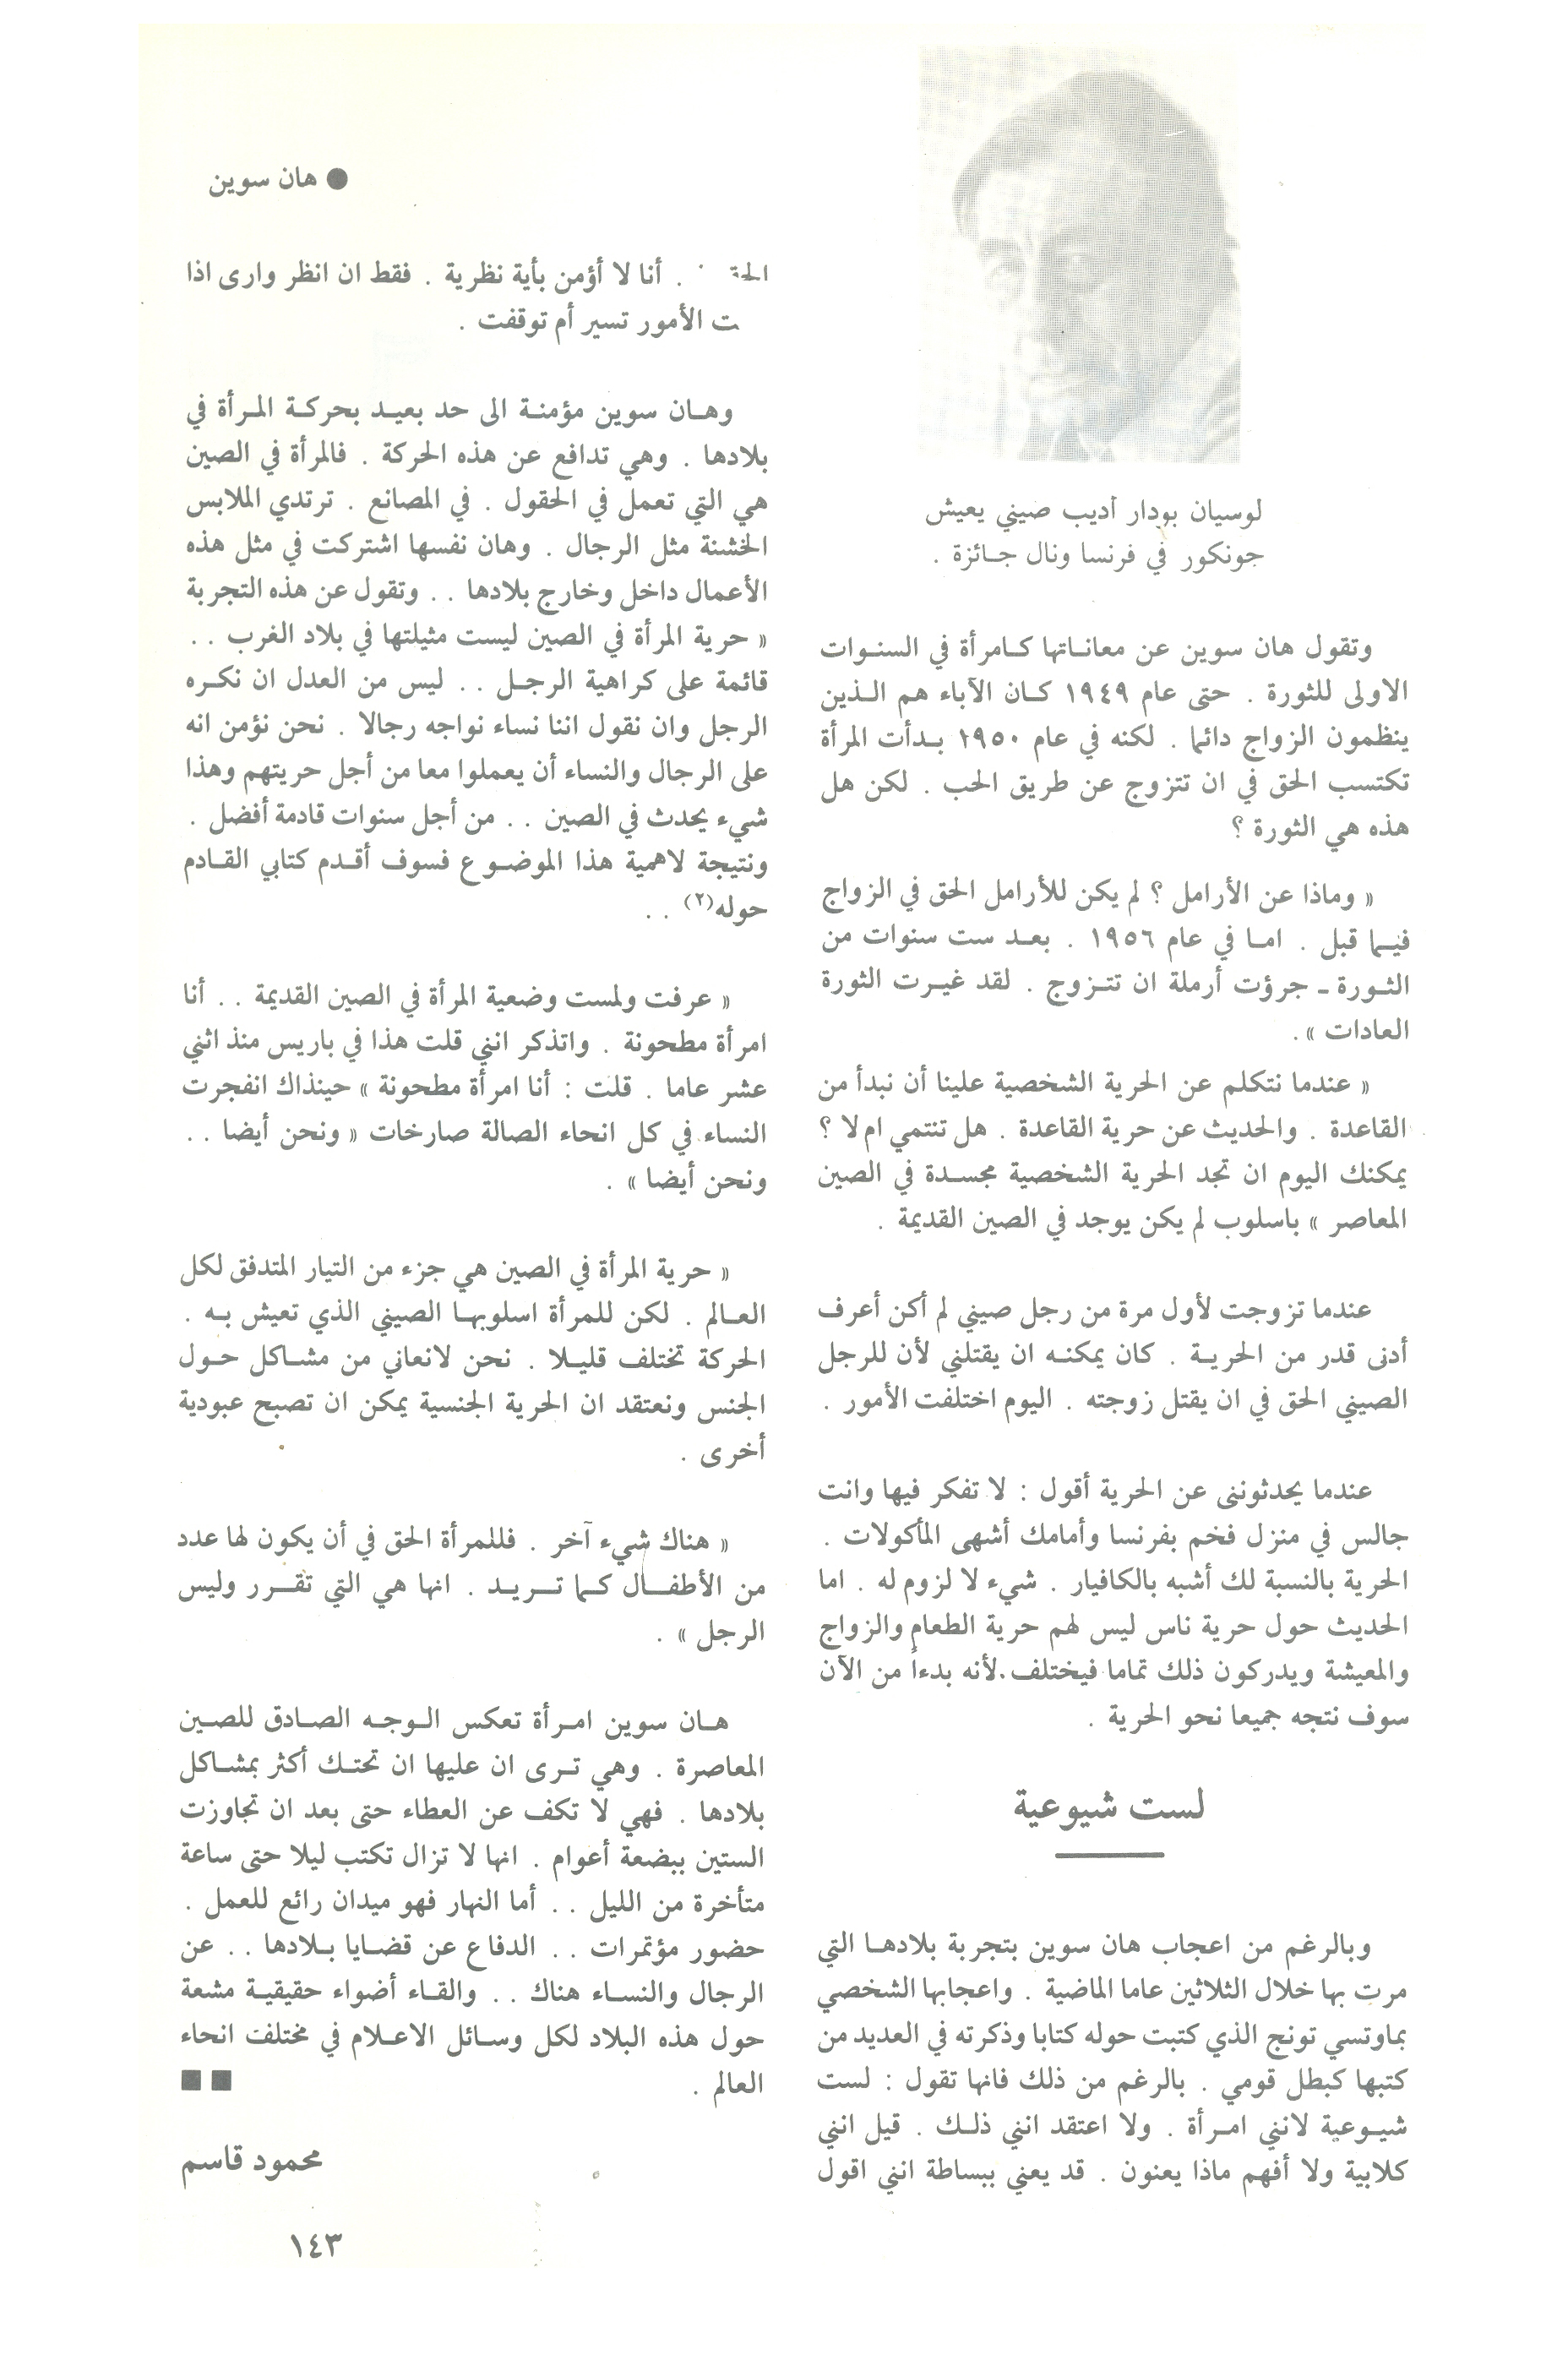 ● هان سوين
لوسيان بودار أديب صيني يعيش
جونكور في فرنسا ونال جـائزة .
وتقول هان سوين عن معانـاتها كـامرأة في السنـوات
الاولى للثورة . حتى عام ١٩٤٩ كـان الآباء هم الـذين
ينظمون الزواج دائما . لكنه في عام ١٩٥٠ بـدأت المرأة
تكتسب الحق في ان تتزوج عن طريق الحب . لكن هل
هذه هي الثورة ؟
« وماذا عن الأرامل ؟ لم يكن للأرامل الحق في الزواج
فيـما قبل . امـا في عام ١٩٥٦ . بعـد ست سنوات من
الثـورة ـ جرؤت أرملة ان تتـزوج . لقد غيـرت الثورة
العادات » .
« عندما نتكلم عن الحرية الشخصية علينا أن نبدأ من
القاعدة . والحديث عن حرية القاعدة . هل تنتمي ام لا ؟
يمكنك اليوم ان تجد الحرية الشخصية مجسـدة في الصين
المعاصر » باسلوب لم يكن يوجد في الصين القديمة .
عندما تزوجت لأول مرة من رجل صيني لم أكن أعرف
أدنى قدر من الحريـة . كان يمكنـه ان يقتلني لأن للرجل
الصيني الحق في ان يقتل زوجته . اليوم اختلفت الأمور .
عندما يحدثوننى عن الحرية أقول : لا تفكر فيها وانت
جالس في منزل فخم بفرنسا وأمامك أشهى المأكولات .
الحرية بالنسبة لك أشبه بالكافيار . شيء لا لزوم له . اما
الحديث حول حرية ناس ليس لهم حرية الطعام والزواج
والمعيشة ويدركون ذلك تماما فيختلف . لأنه بدءاً من الآن
سوف نتجه جميعا نحو الحرية .
لست شيوعية
وبالرغم من اعجاب هان سوين بتجربة بلادهـا التي
مرت بها خلال الثلاثين عاما الماضية . واعجابها الشخصي
بماوتسي تونج الذي كتبت حوله كتابا وذكرته في العديد من
كتبها كبطل قومي . بالرغم من ذلك فانها تقول : لست
شيـوعية لانني امـرأة . ولا اعتقد انني ذلـك . قيل انني
كلابية ولا أفهم ماذا يعنون . قد يعني ببساطة انني اقول
. أنا لا أؤمن بأية نظرية . فقط ان انظر وارى اذا
الأمور تسير أم توقفت .
وهـان سوين مؤمنـة الى حد بعيـد بحركـة المـرأة في
بلادها . وهي تدافع عن هذه الحركة . فالمرأة في الصين
هي التي تعمل في الحقول . في المصانع . ترتدي الملابس
الخشنة مثل الرجال . وهان نفسها اشتركت في مثل هذه
الأعمال داخل وخارج بلادها . . وتقول عن هذه التجربة
« حرية المرأة في الصين ليست مثيلتها في بلاد الغرب . .
قائمة على كراهية الرجـل . . ليس من العدل ان نكـره
الرجل وان نقول اننا نساء نواجه رجالا . نحن نؤمن انه
على الرجال والنساء أن يعملوا معا من أجل حريتهم وهذا
شيء يحدث في الصين . . من أجل سنوات قادمة أفضل .
ونتيجة لاهمية هذا الموضـوع فسوف أقـدم كتابي القـادم
حوله(٢) . .
« عرفت ولمست وضعية المرأة في الصين القديمة . . أنا
امرأة مطحونة . واتذكر انني قلت هذا في باريس منذ اثني
عشر عاما . قلت : أنا امرأة مطحونة » حينذاك انفجرت
النساء في كل انحاء الصالة صارخات « ونحن أيضا . .
ونحن أيضا » .
« حرية المرأة في الصين هي جزء من التيار المتدفق لكل
العـالم . لكن للمرأة اسلوبهـا الصيني الذي تعيش بـه .
الحركة تختلف قليـلا . نحن لانعاني من مشـاكل حـول
الجنس ونعتقد ان الحرية الجنسية يمكن ان تصبح عبودية
أخرى .
« هناك شيء آخر . فللمرأة الحق في أن يكون لها عدد
من الأطفـــال كـــما تـــريـــد . انها هي التي تقـــرر وليس
الرجل » .
هـان سوين امـرأة تعكس الـوجـه الصـادق للصـين
المعاصرة . وهي تـرى ان عليها ان تحتـك أكثر بمشـاكل
بلادها . فهي لا تكف عن العطاء حتى بعد ان تجاوزت
الستين ببضعة أعوام . انها لا تزال تكتب ليلا حتى ساعة
متأخرة من الليل . . أما النهار فهو ميدان رائع للعمل .
حضور مؤتمرات . . الدفاع عن قضـايا بـلادها . . عن
الرجال والنسـاء هناك . . والقـاء أضواء حقيقيـة مشعة
حول هذه البلاد لكل وسـائل الاعـلام في مختلف انحاء
العالم . ■ ■
محمود قاسم
١٤٣